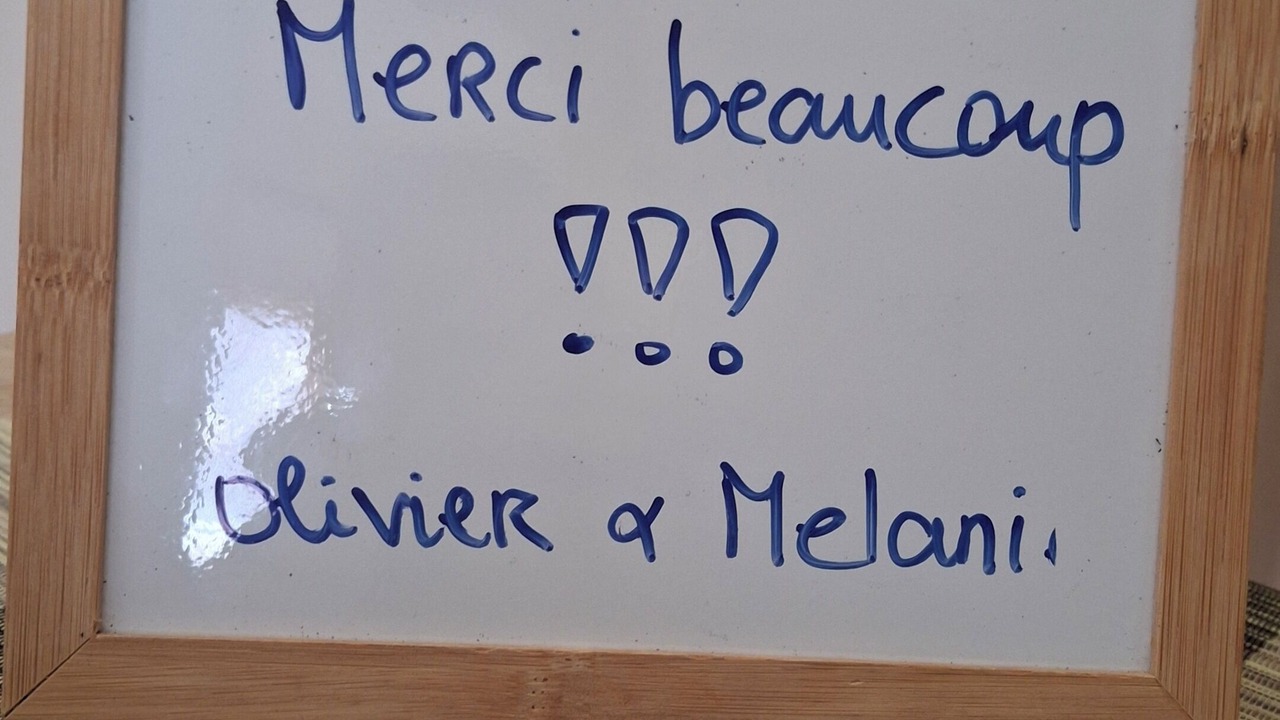 Merci beaucoup
!!!
Olivier & Melani.